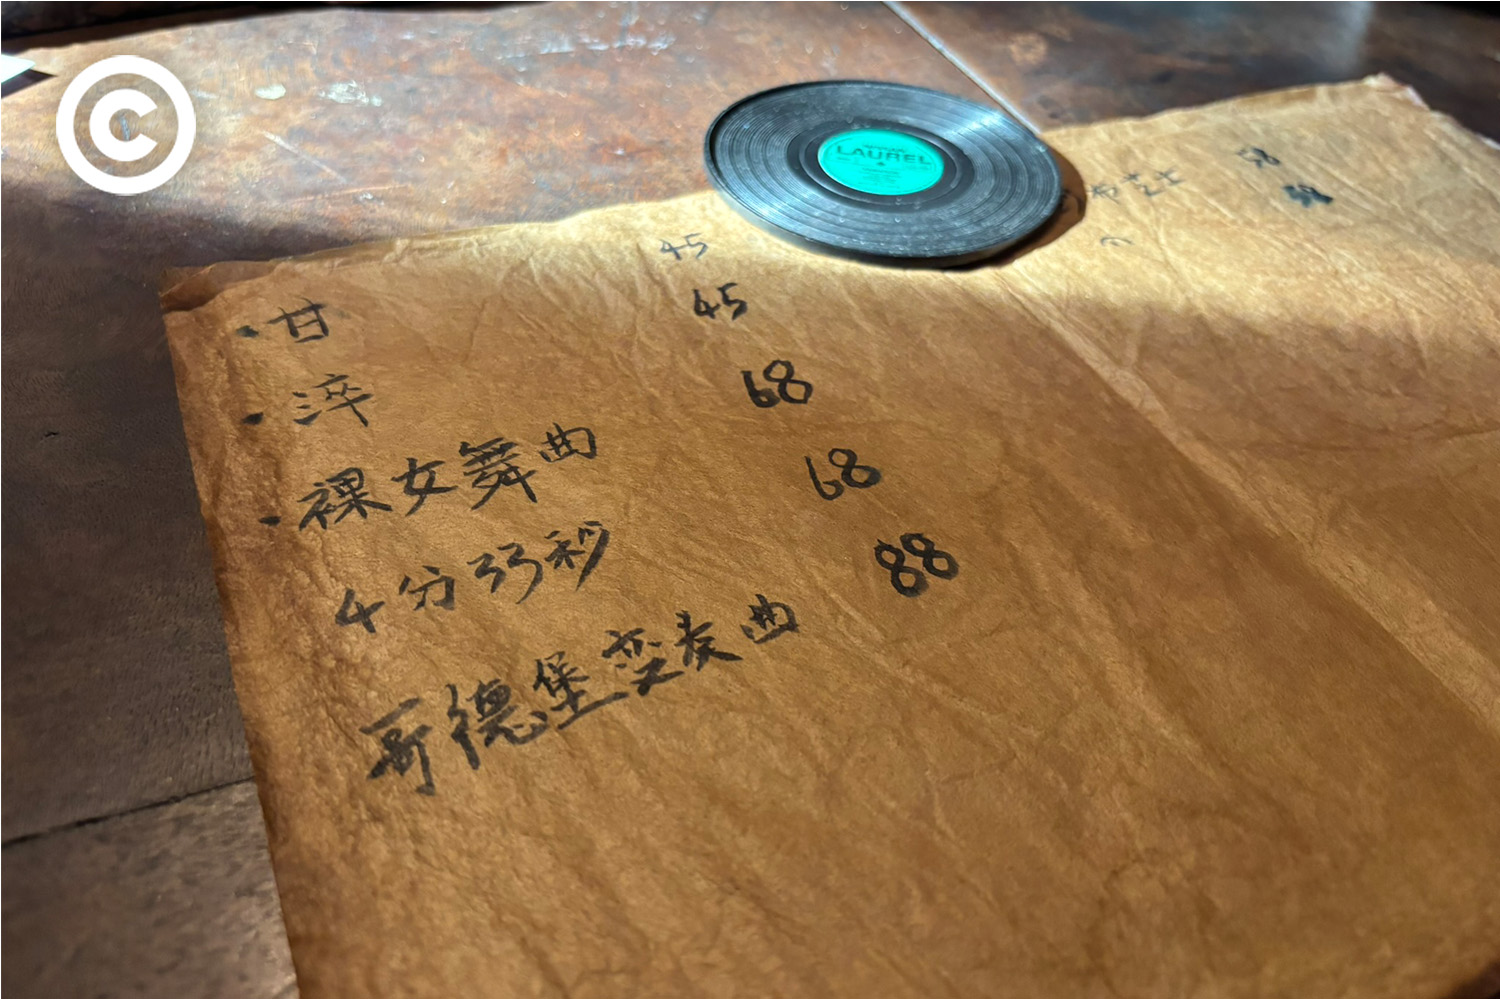 LAUREL
58
58
45
·甘 45
·淬 68
·裸女舞曲 68
4分33秒 88
哥德堡变奏曲